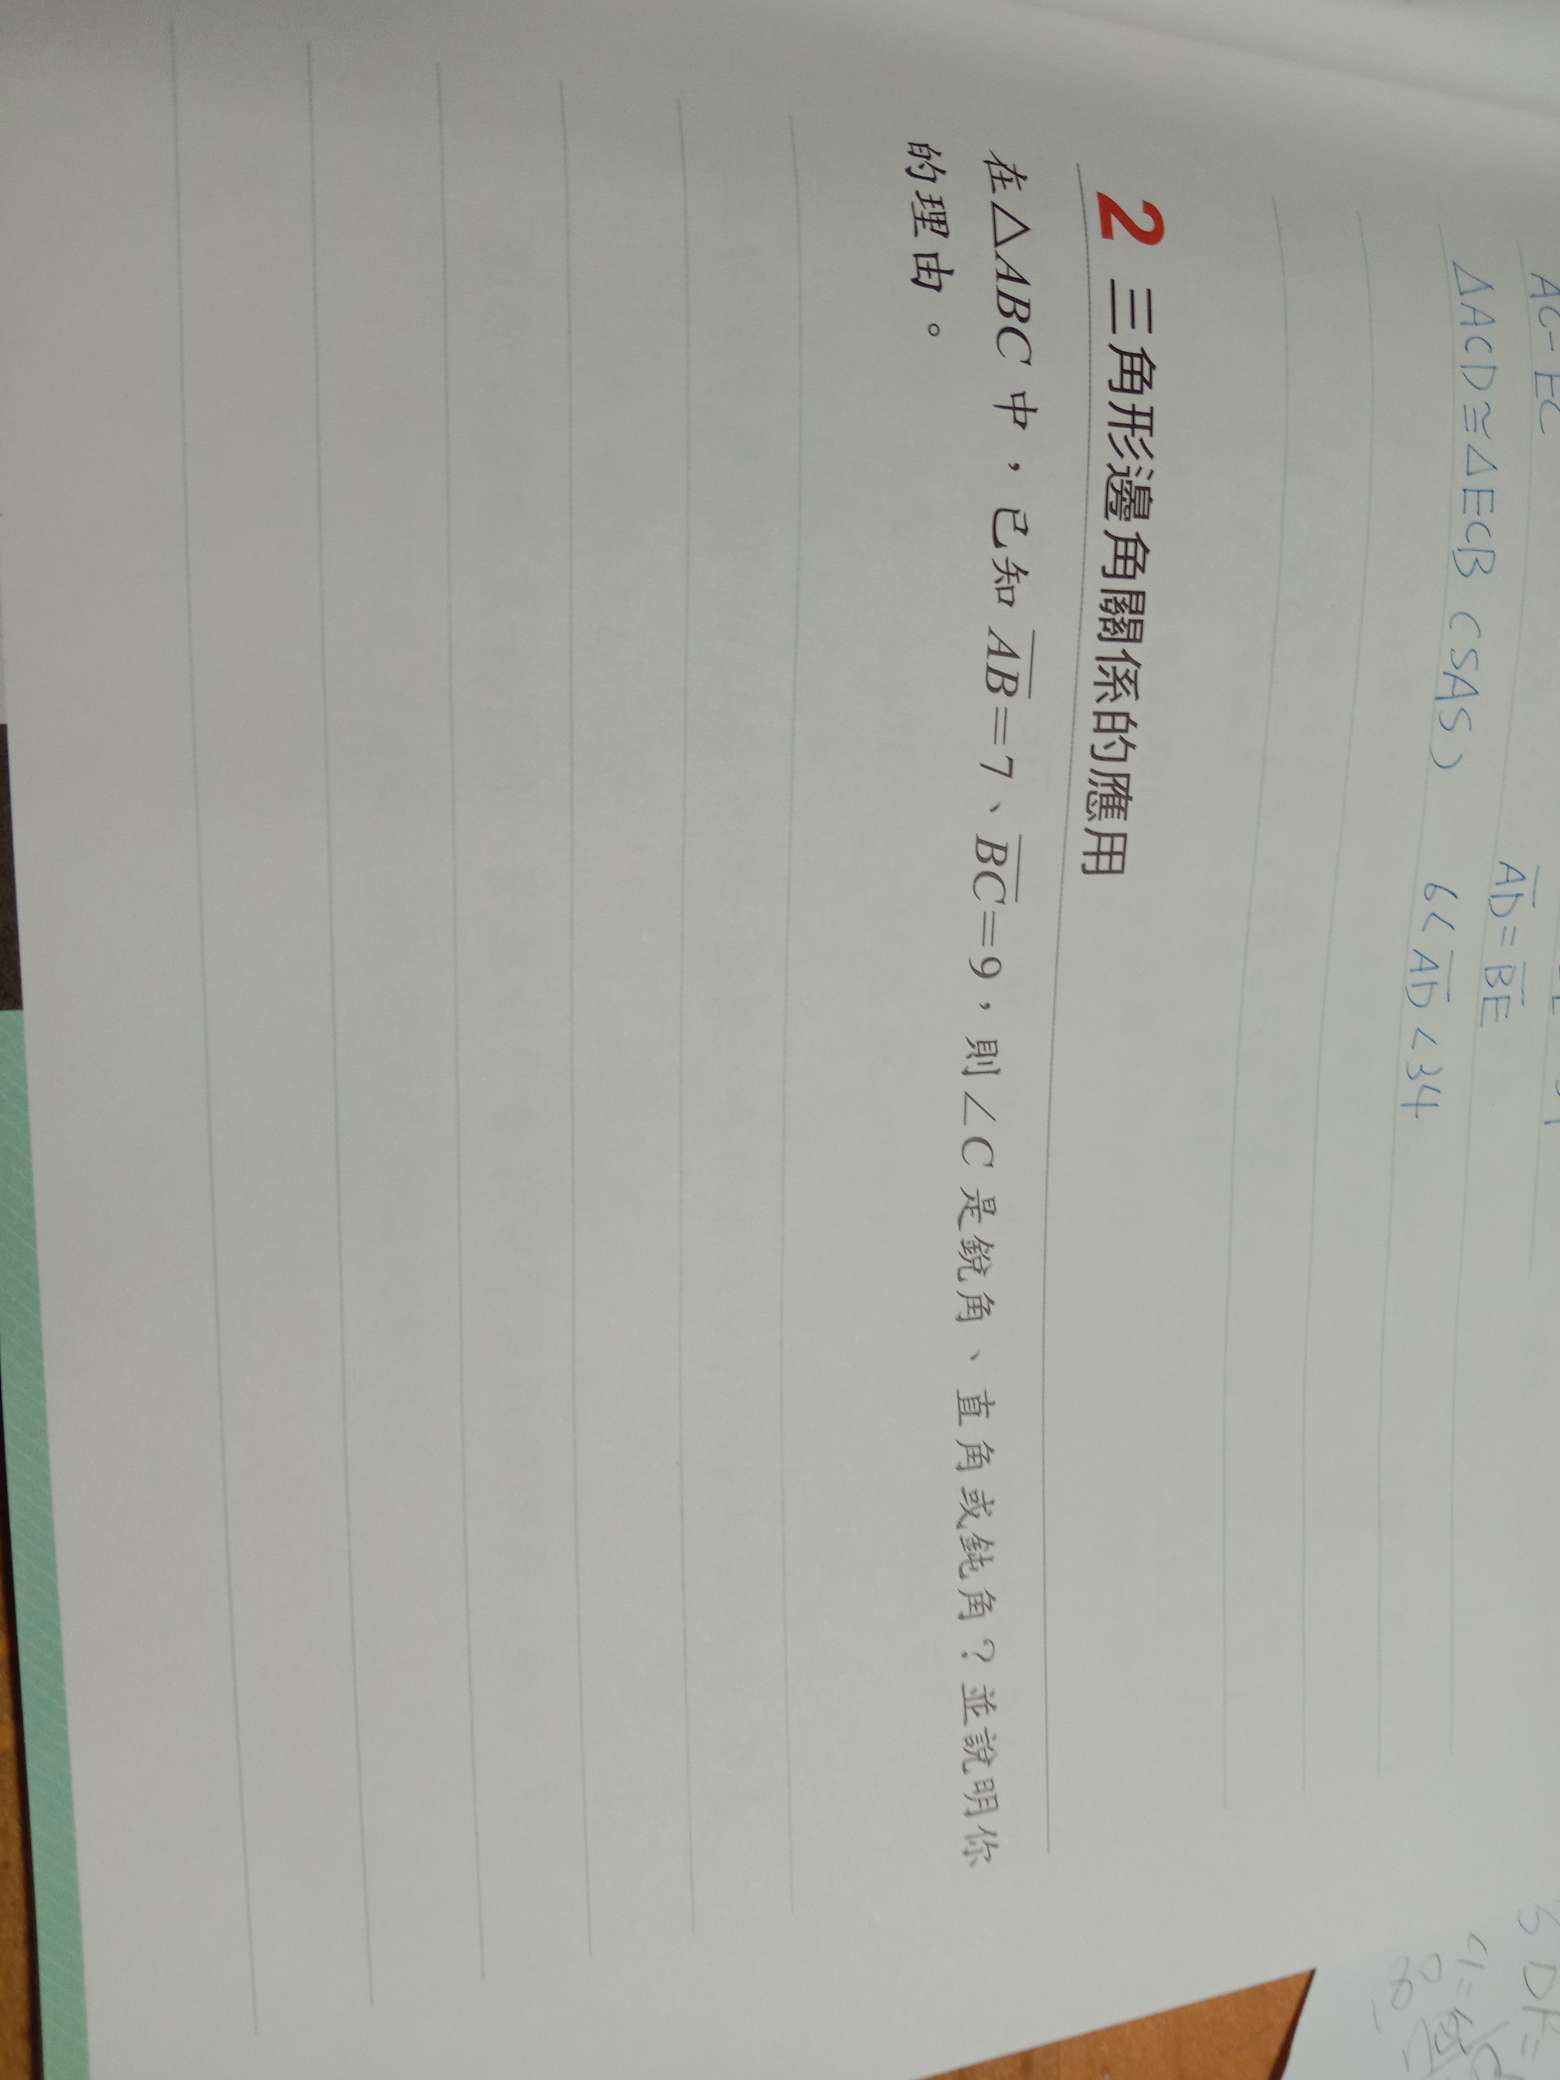 △ACD≅△ECB (SAS)
AD=BE
6<AD<34
2 三角形邊角關係的應用
在△ABC 中，已知 AB=7、BC=9，則∠C 是銳角、直角或鈍角？並說明你
的理由。